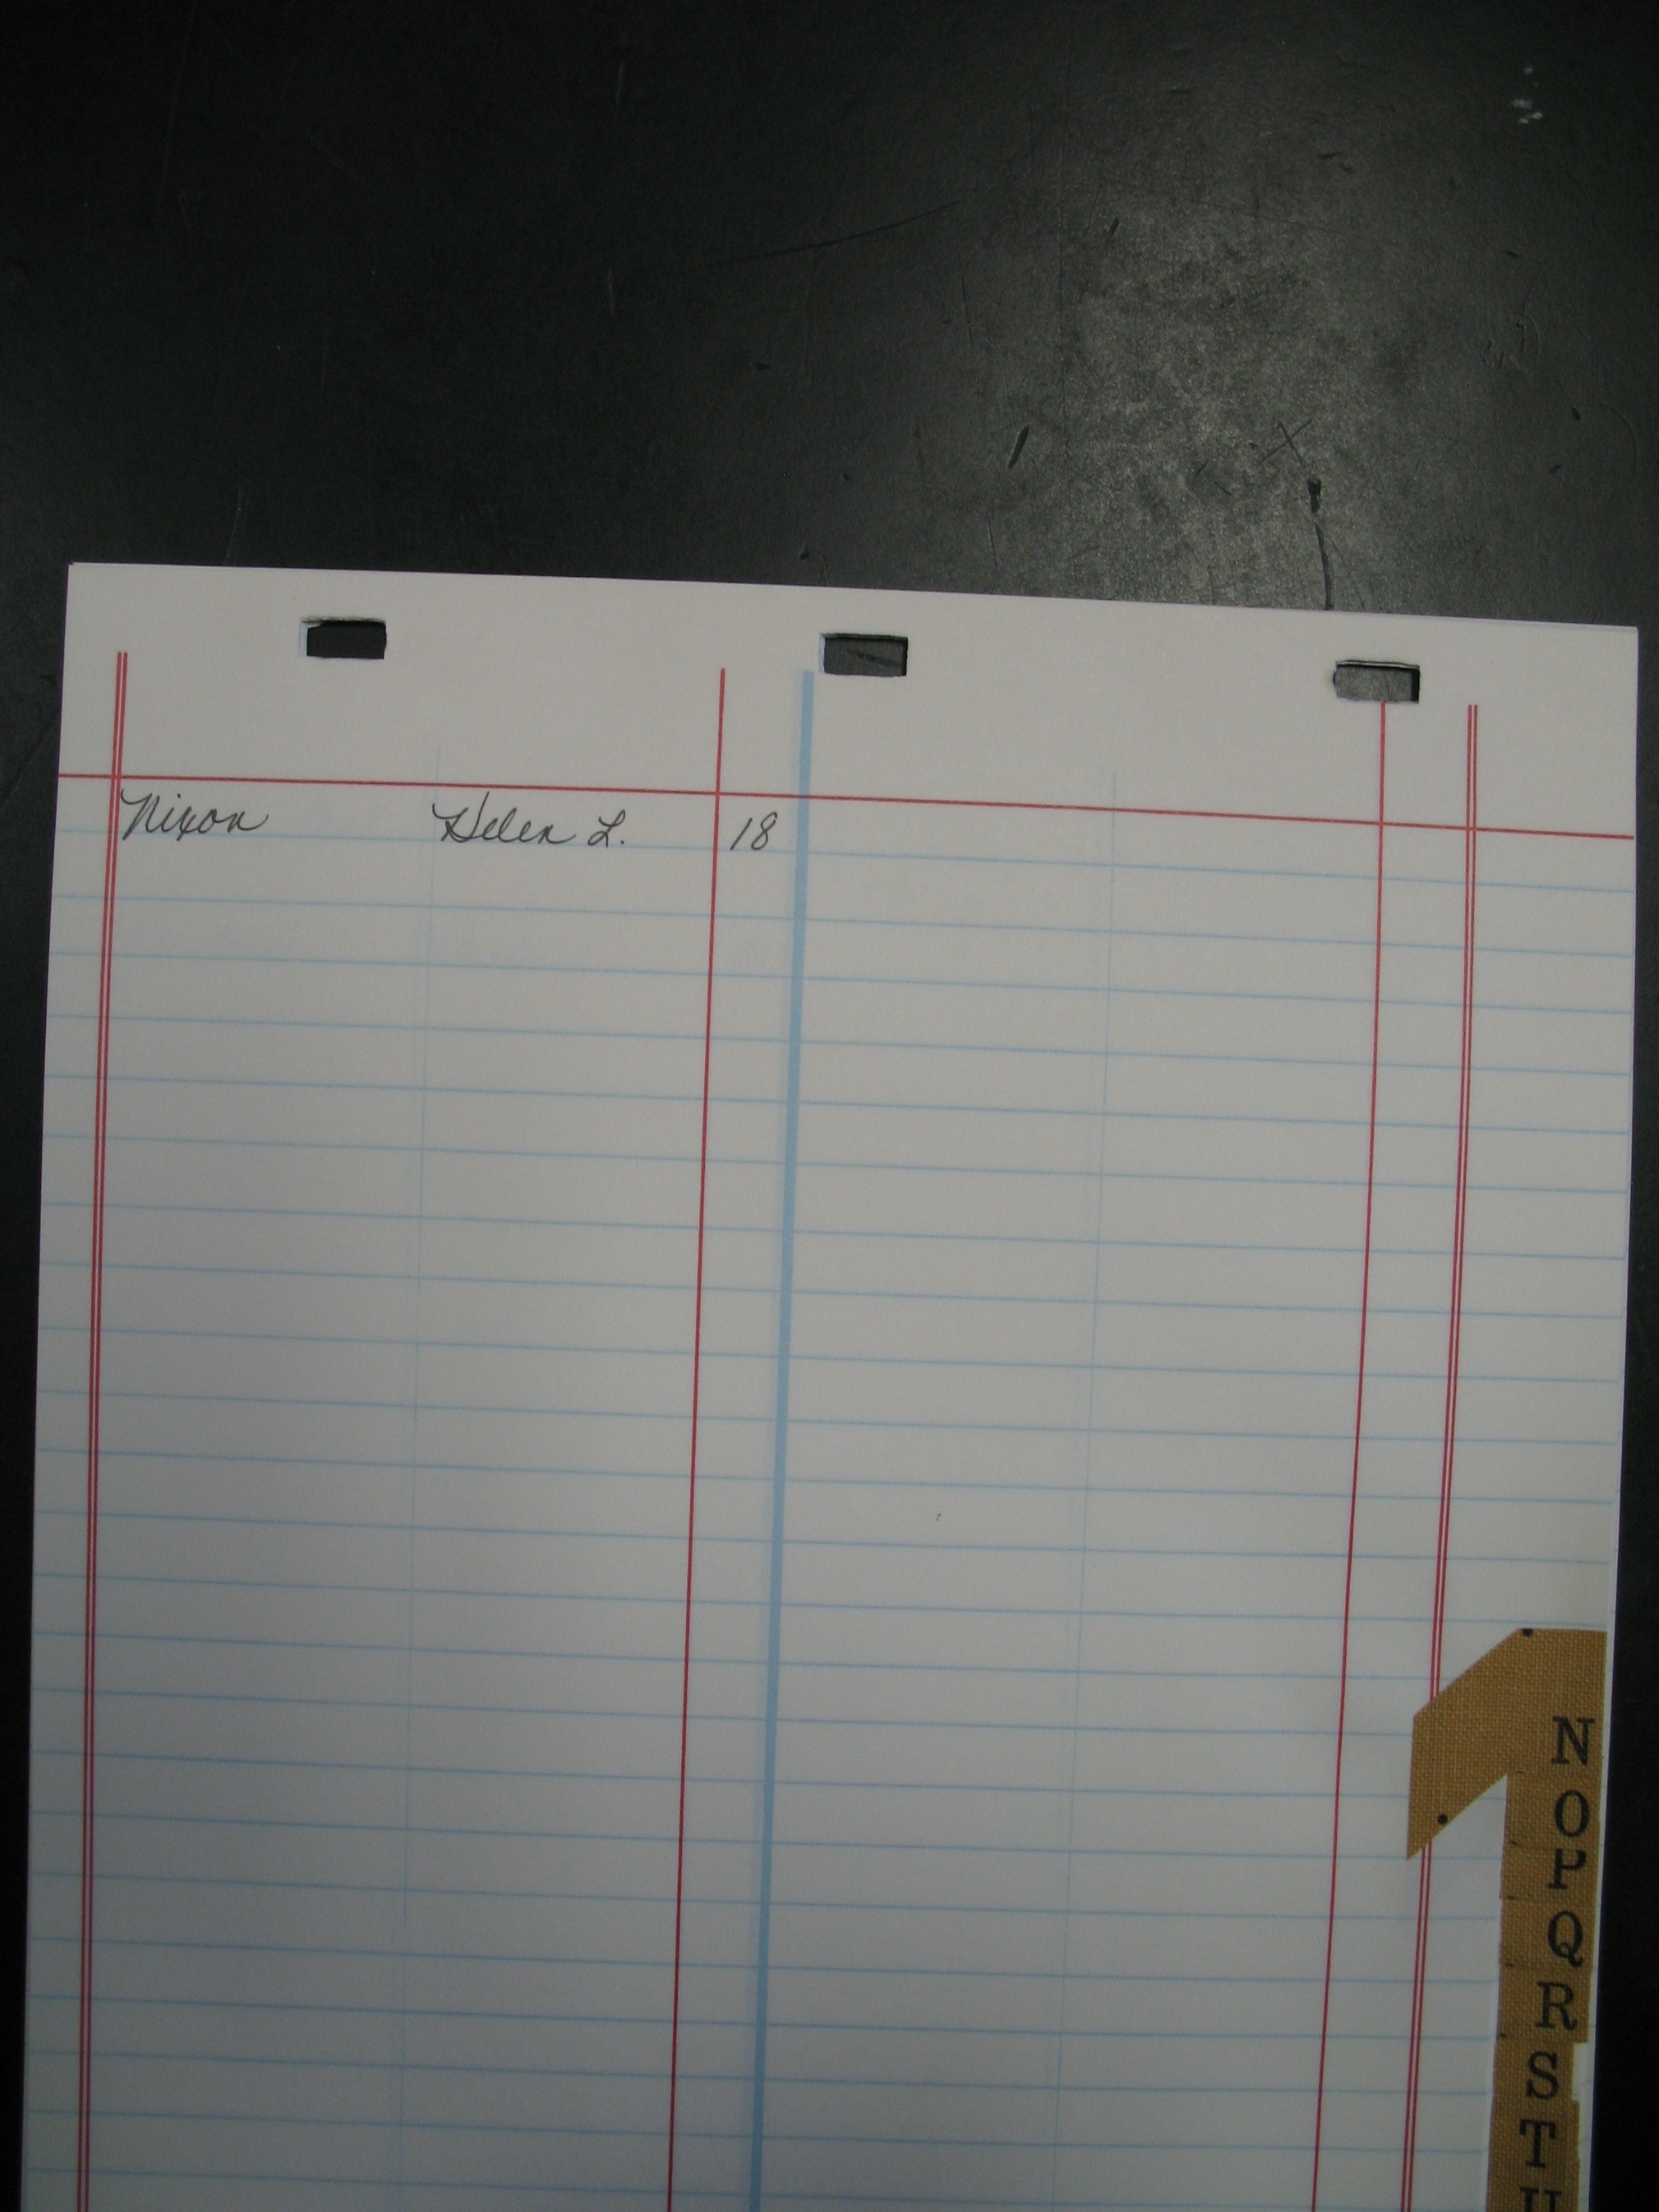 Nixon Helen L. 18
N
O
P
Q
R
S
T
U